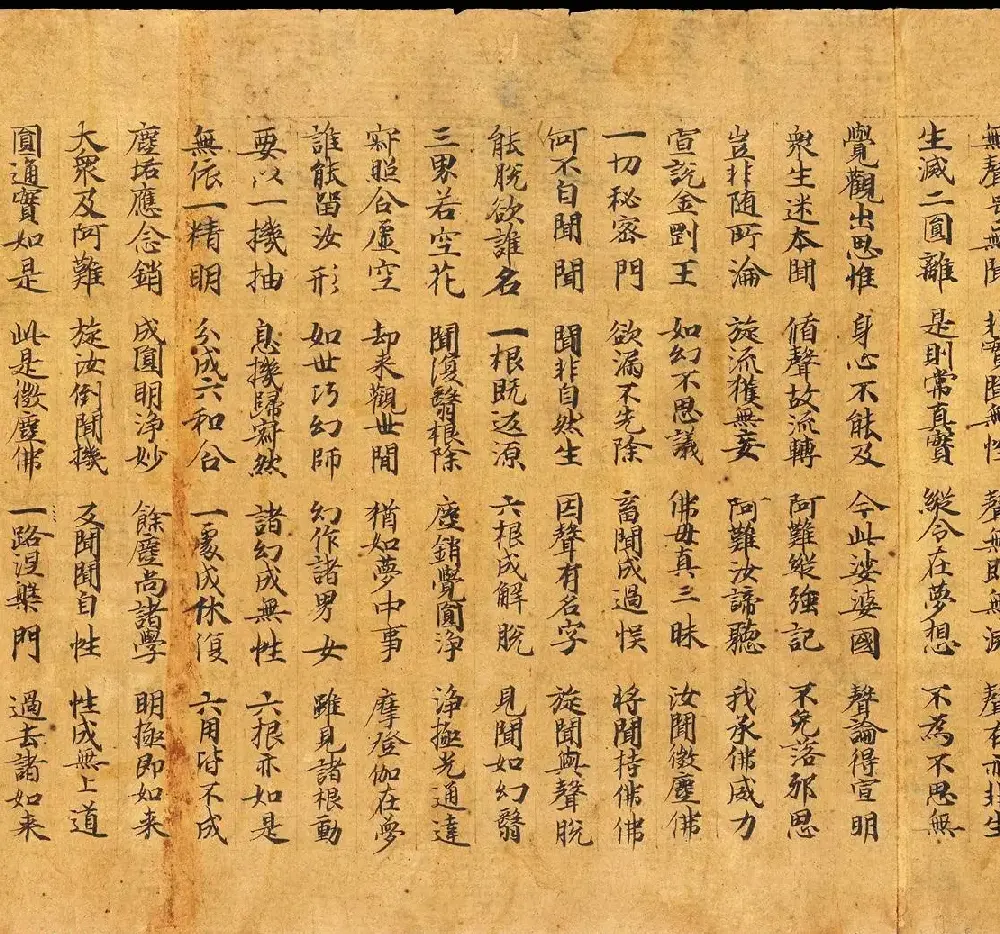 無聲号無聞 非實聞無性 聲無既無滅 聲有亦非生
生滅二圓離 是則常真實 縱令在夢想 不為不思無
覺觀出思惟 身心不能及 今此娑婆國 聲論得宣明
衆生迷本聞 循聲故流轉 阿難縱強記 不免落邪思
豈非随所淪 旋流獲無妄 阿難汝諦聽 我承佛威力
宣説金剛王 如幻不思議 佛母真三昧 汝聞微塵佛
一切秘密門 欲漏不先除 畜聞成過悮 将聞持佛佛
何不自聞聞 聞非自然生 因聲有名字 旋聞與聲脱
能脱欲誰名 一根既返源 六根成解脱 見聞如幻翳
三界若空花 聞復翳根除 塵銷覺圓淨 淨極光通達
寂照合虛空 却来觀世間 猶如夢中事 摩登伽在夢
誰能留汝形 如世巧幻師 幻作諸男女 雖見諸根動
要以一機抽 息機歸寂然 諸幻成無性 六根亦如是
無依一精明 分成六和合 一處成休復 六用皆不成
塵垢應念銷 成圓明淨妙 餘塵尚諸學 明極即如来
大衆及阿難 旋汝倒聞機 反聞聞自性 性成無上道
圓通實如是 此是微塵佛 一路涅槃門 過去諸如来